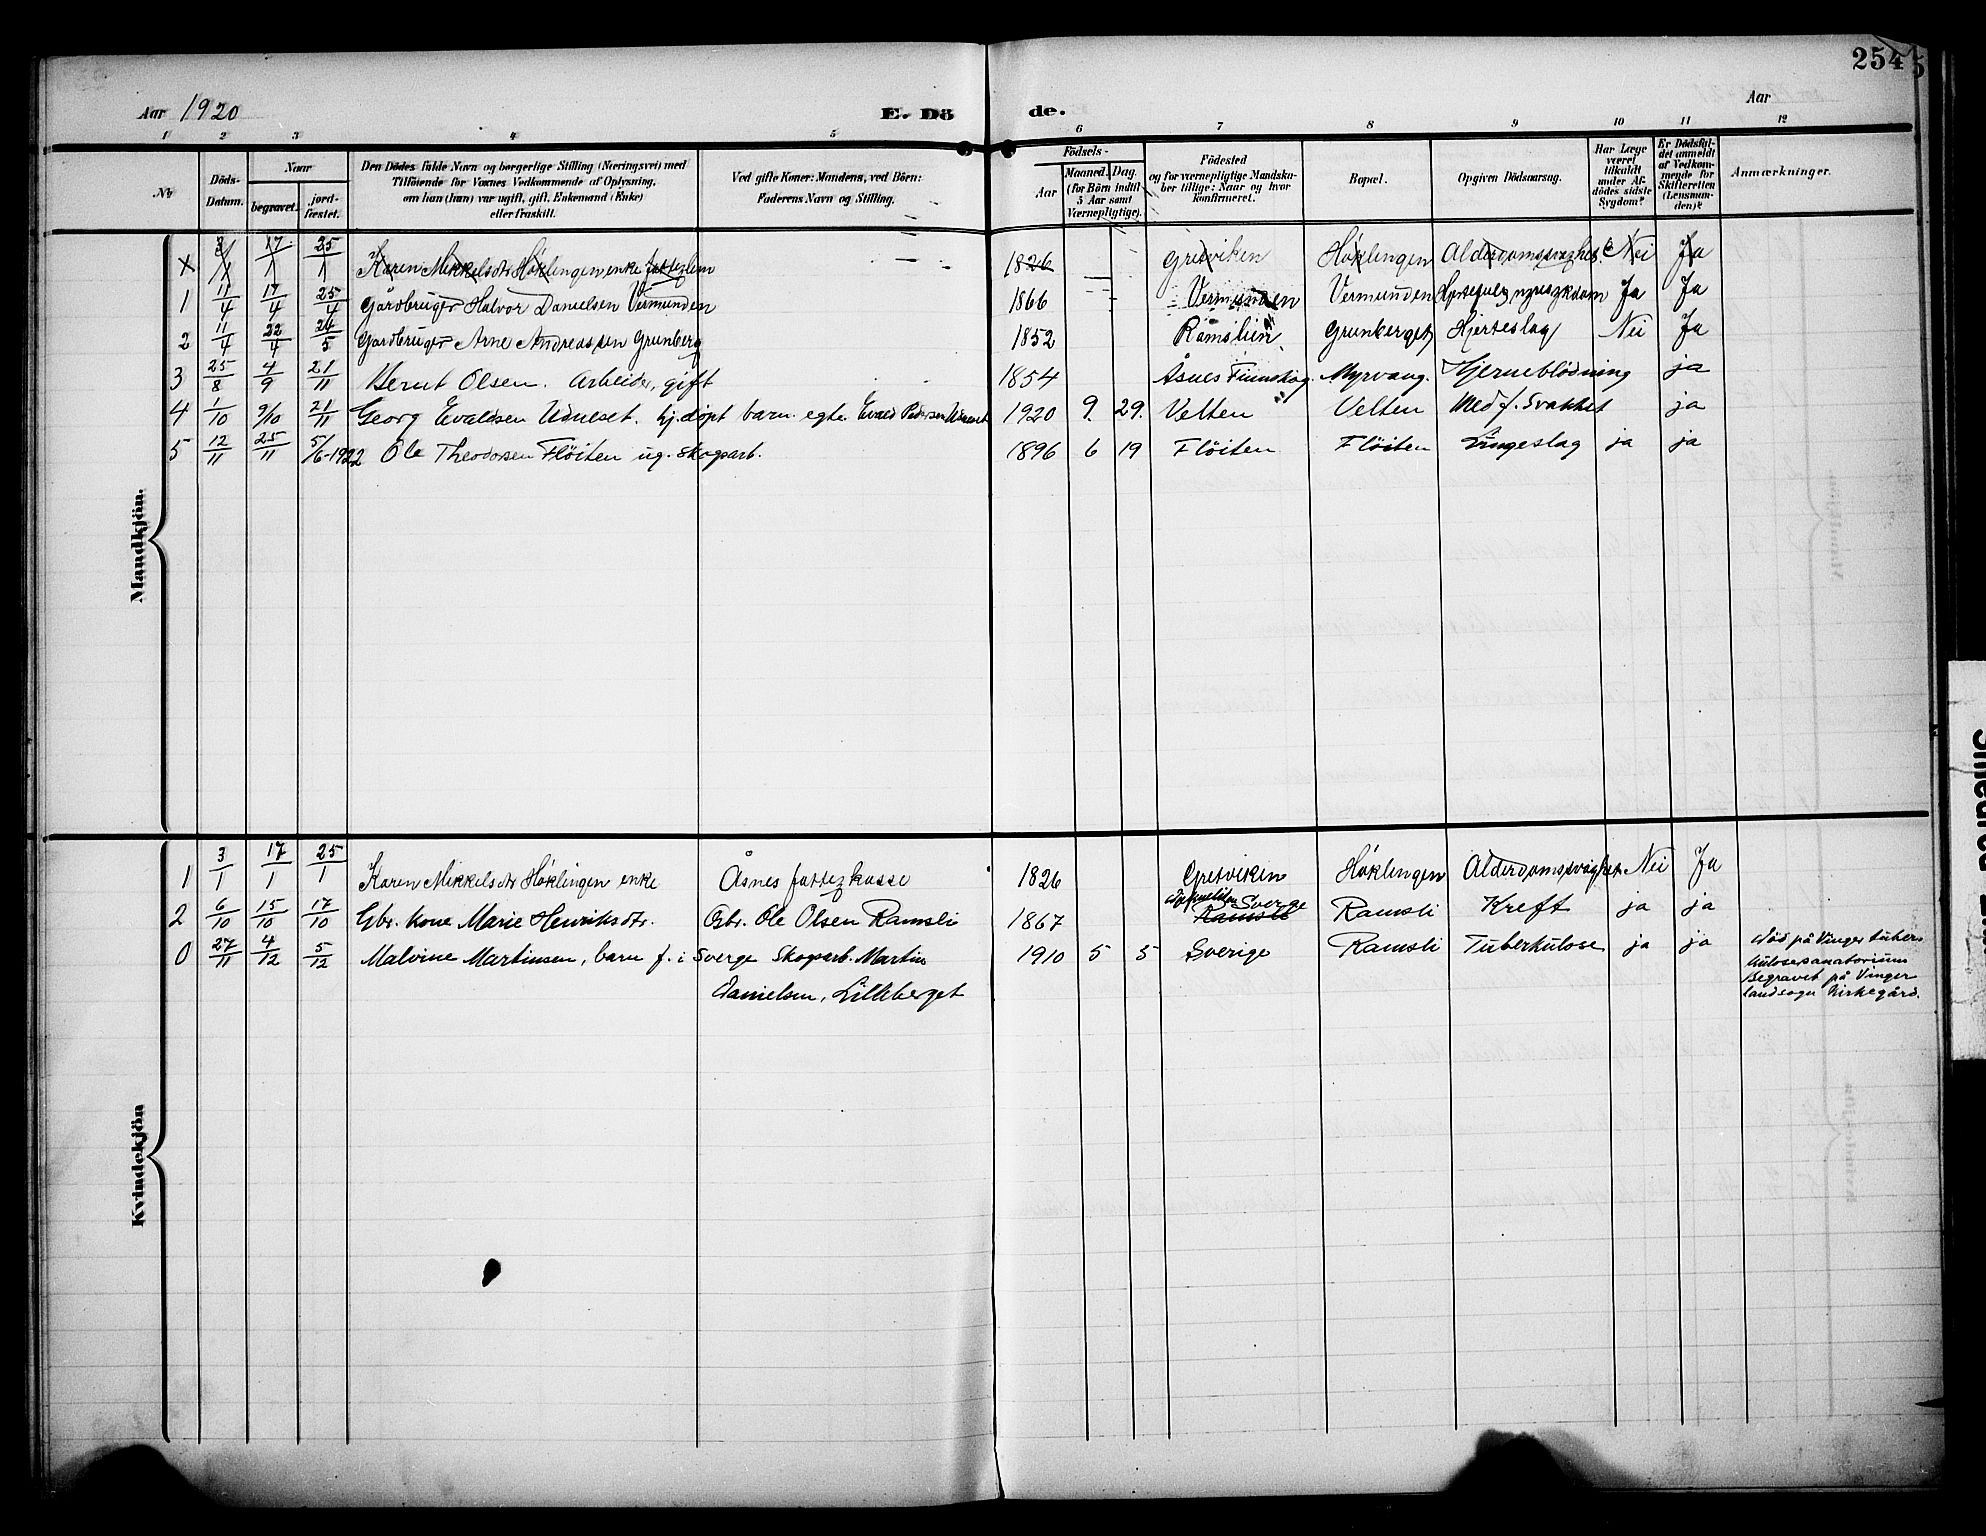 254
Aar 1920 E. Dö de. Aar
1 2 3 4 5 6 7 8 9 10 11 12
Nr.
Döds-Datum.
Naar
begravet.
jordfæstet.
Den Dödes fulde Navn og borgerlige Stilling (Næringsvei) med
Tilföiende for Voxnes Vedkommende af Oplysning,
om han (hun) var ugift, gift, Enkemand (Enke)
eller fraskilt.
Ved gifte Koner: Mandens, ved Börn:
Faderens Navn og Stilling.
Födsels-
Aar
Maaned. Dag.
(for Börn indtil
5 Aar samt
Værnepligtige).
Födested
og for værnepligtige Mandskaber
tillige: Naar og hvor
konfirmeret.
Bopæl.
Opgiven Dödsaarsag.
Har Læge
været
tilkaldt
under Afdödes
sidste
Sygdom?
Er Dödsfaldet
anmeldt
af Vedkommende
for
Skifteretten
(Lensmanden)?
Anmærkninger.
Mandkjön.
x 3/1 17/1 25/1 Karen Mikkelsdtr Höklingen enke 1826 Gretviken Höklingen Alderdomssvaghet Nei Ja
1 11/4 17/4 25/4 Gårdbruger Halvor Danielsen Vermunden 1866 Vermunden Vermunden Ja Ja
2 11/4 22/4 24/5 Gårdbruger Arne Andreassen Grunberg 1852 Rämslien Grunberget Hjerteslag Nei Ja
3 25/8 4/9 21/11 Bernt Olsen. Arbeider, gift 1854 Åsnes Finnskog. Myrvang. Hjerneblödning ja
4 1/10 9/10 21/11 Georg Evaldsen Udneset. hj.döpt barn. egte Evald Pedersen Udneset 1920 9. 29. Velten Velten Med f. Svakhet ja
5 12/11 25/11 5/6-1922 Ole Theodorsen Flöiten ug. skogsarb. 1896 6 19 Flöiten Flöiten Lungeslag ja ja
Kvindekjön
1 3/1 17/1 25/1 Karen Mikkelsdtr Höklingen enke Åsnes fattigkasse 1826 Gretviken Höklingen Alderdomssvaghet Nei Ja
2 6/10 15/10 17/10 Gbr. kone Marie Henriksdtr. Gbr. Ole Olsen Ramsli 1867 Sverge Ramsli Ramsli Kreft ja ja
0 27/11 4/12 5/12 Malvine Martinsen, barn f. i Sverge Skogsarb. Martin 1910 5 5 Sverige Ramsli Tuberkulose ja ja Död på Vinger tuber-
Danielsen, Lilleberget kulosesanatorium
Begravet på Vinger
landsogn kirkegård.